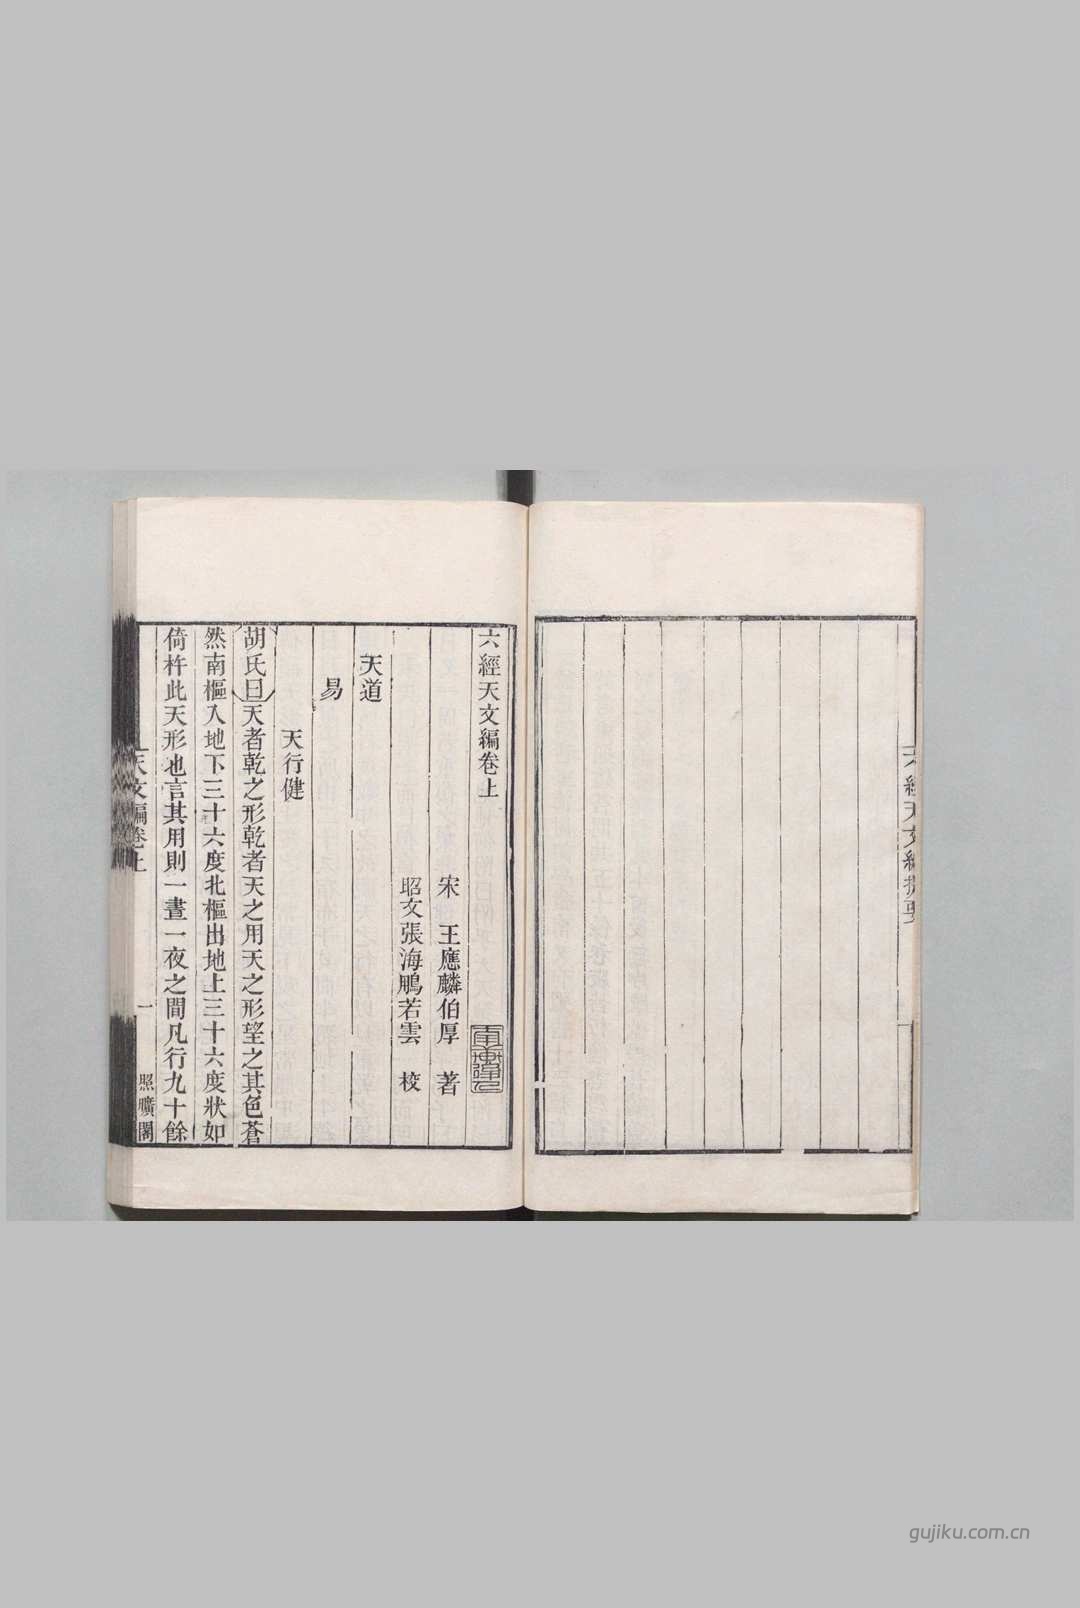 六經天文編提要
六經天文編卷上
宋 王應麟伯厚 著
昭文張海鵬若雲 校
天道
易
天行健
胡氏曰天者乾之形乾者天之用天之形望之其色蒼
然南樞入地下三十六度北樞出地上三十六度狀如
倚杵此天形也言其用則一晝一夜之間凡行九十餘
天文編卷上
一
照曠閣
gujiku.com.cn